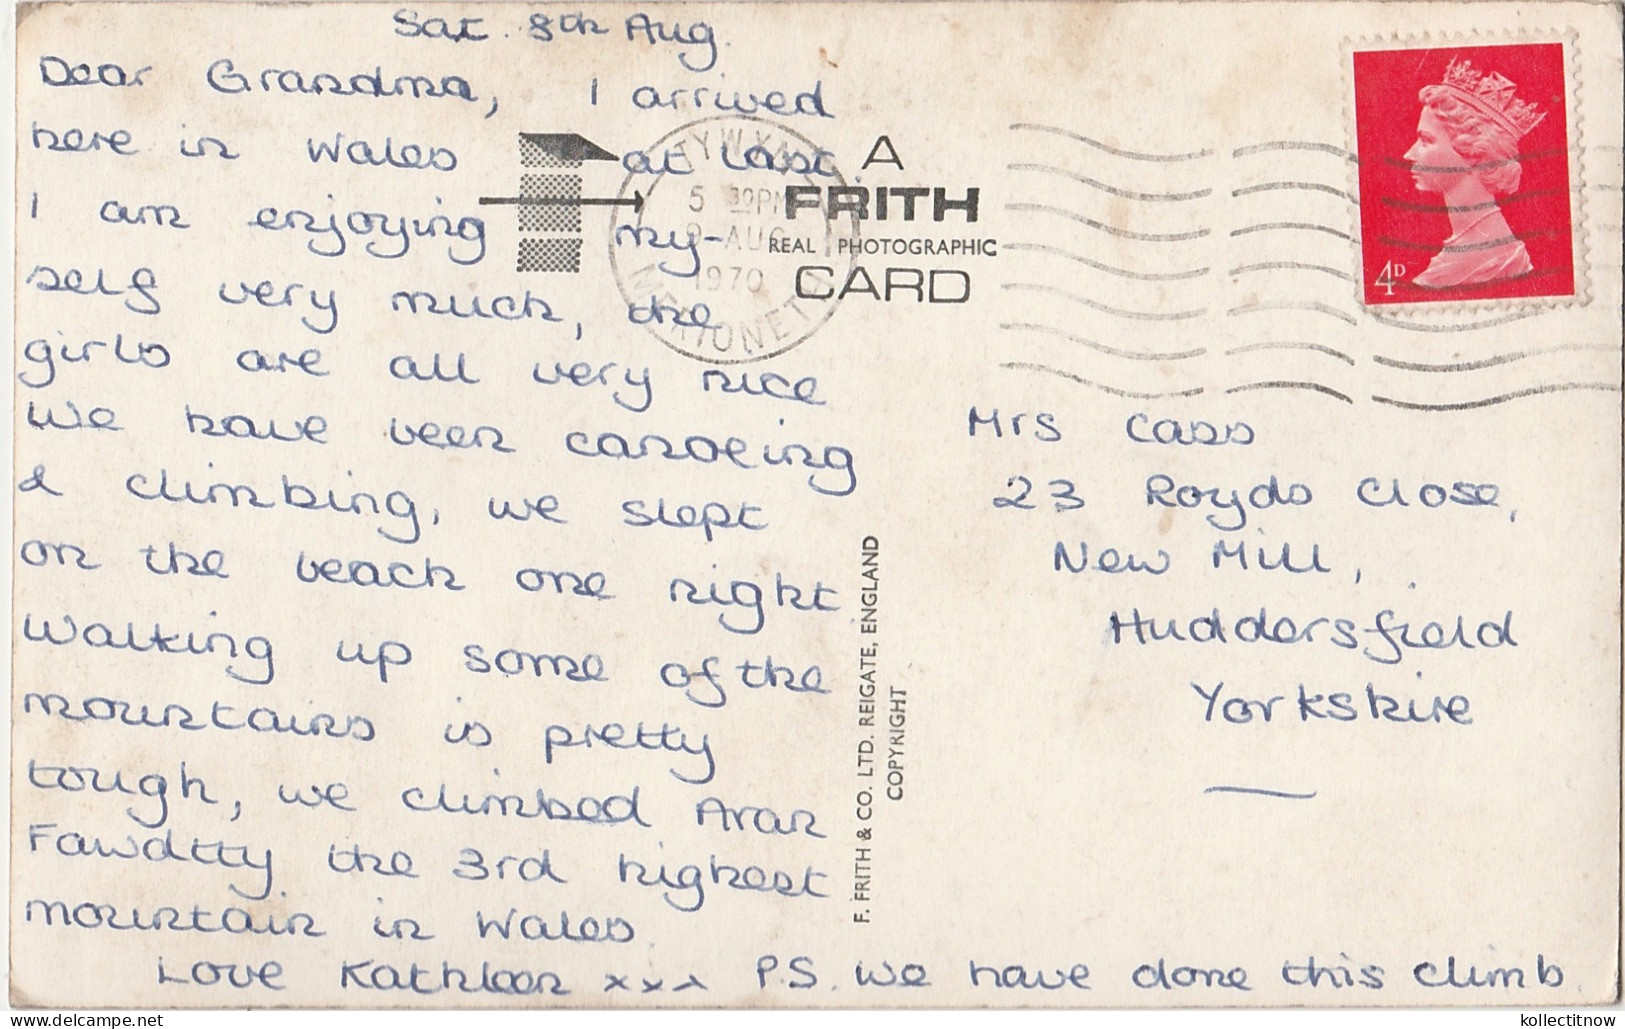 Sat. 8th Aug.
Dear Grandma, I arrived
here in Wales at last.
I am enjoying my-
self very much, the
girls are all very nice
We have been canoeing
& climbing, we slept
on the beach one night
Walking up some of the
mountains is pretty
tough, we climbed Aran
Fawdtty the 3rd highest
mountain in Wales.
Love Kathleen xxx P.S. we have done this climb
A
FRITH
REAL PHOTOGRAPHIC
CARD
5 30PM
9 AUG
1970
4D
Mrs Cass
23 Royds Close,
New Mill,
Huddersfield
Yorkshire
F. FRITH & CO. LTD. REIGATE, ENGLAND
COPYRIGHT
kollectitnow